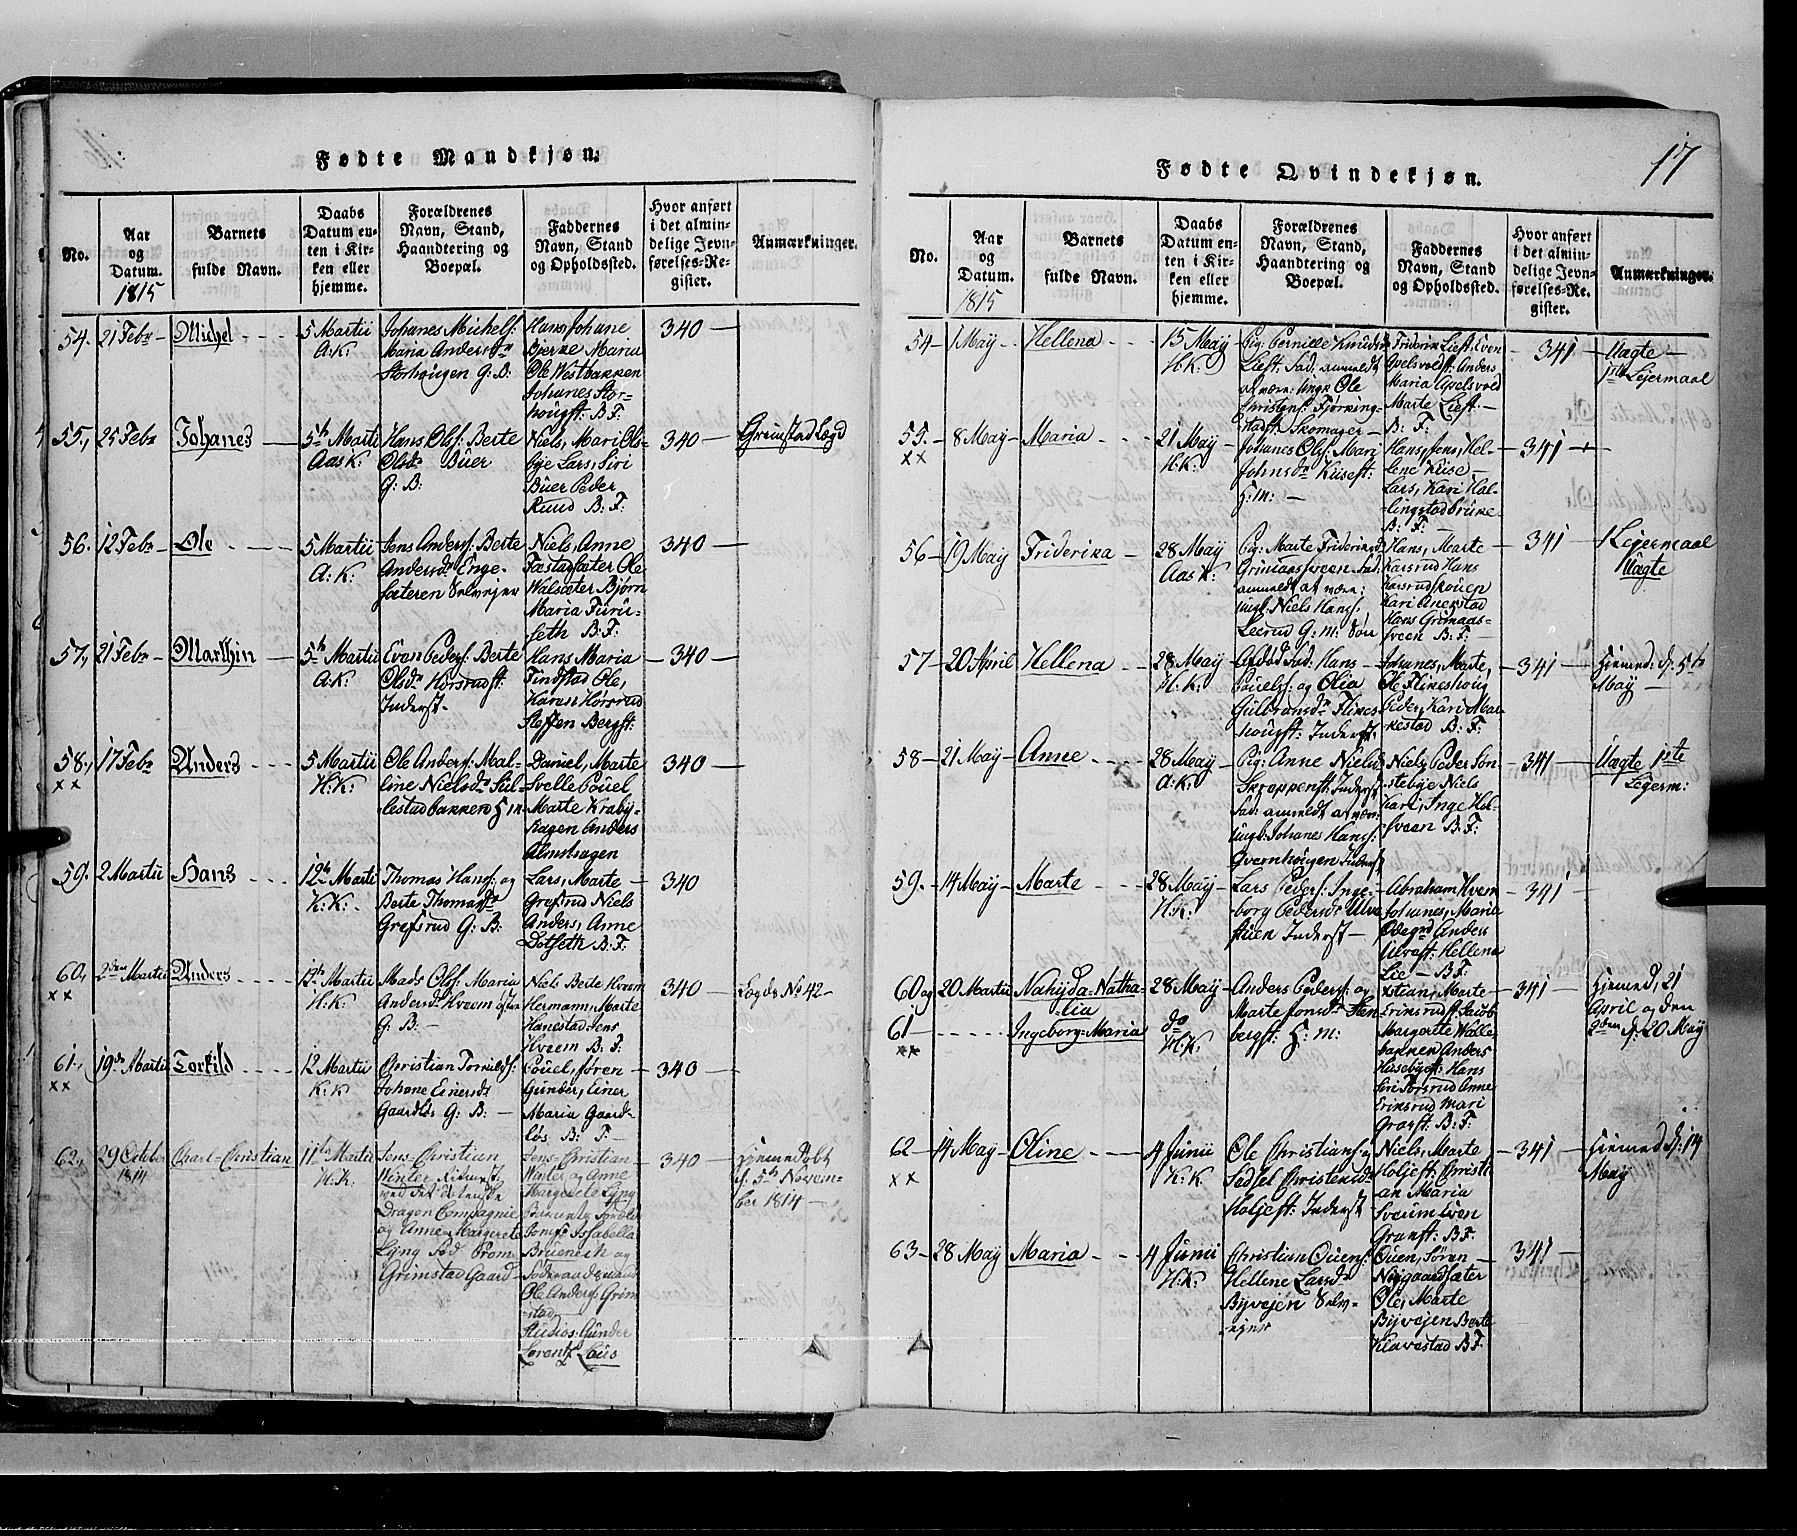 Fødte Mandkjøn.
No.
Aar
og
Datum.
1815
Barnets
fulde Navn.
Daabs
Datum en-
ten i Kir-
ken eller
hjemme.
Forældrenes
Navn, Stand,
Haandtering og
Boepæl.
Faddernes
Navn, Stand
og Opholdssted.
Hvor anført
i det almin-
delige Jevn-
førelses-Re-
gister.
Anmærkninger.
54. 21 Febr Michel 5 Martii
A: K:
Johanes Michels:
Maria Andersdr
Storhougen G: B:
Hans, Johane
Bjerke Maria
Ole Westbakken
Johanes Stor-
hougst: B: F:
340
55. 25 Febr Johanes 5te Martii
Aas K:
Hans Olss: Berte
Olsdr Buer
G: B:
Niels, Mari Ols-
bye Lars, Siri
Buer Peder
Ruud B: F:
340
Grimstad Lægd
56. 12 Febr Ole 5 Martii
A: K:
Jens Anders: Berte
Andersdr Enge-
sæteren Selvejer
Niels, Anne
Fæstadsæter Ole
Walsæter Bjørn
Maria Furu-
seth B: F:
340
57. 21 Febr Marthin 5te Martii
A: K:
Even Peders: Berte
Olsdr Horsrudst:
Inderst.
Hans Maria
Findstad Ole,
Karen Hørsrud
Steffen Bergst:
340
58. 17 Febr Anders 5 Martii
xx H: K:
Ole Anders: Mal-
line Nielsdr Sul-
lestadbakken H: m
Daniel, Marte
Svelle Pouel
Marte Kraby-
hagen Anders
Almshagen
340
59. 2 Martii Hans 12te Marti
K: K:
Thomas Hans: og
Berte Thomasdr
Grefsrud G: B:
Lars, Marte
Grefsrud Niels
Anders, Anne
Dotseth B: F:
340
60. 2den Martii Anders 12te Martii
xx H: K:
Mads Olss: Maria
Andersdr Hveem
G: B:
Niels Berte Hveem
Hermann, Marte
Hanestad Jens
Hveem B: F:
340
Lægds No 42
61. 19de Martii Torkild 12 Martii
xx K: K:
Christian Torkilds:
Johane Einersdr
Gaardlös G: B:
Pouel, Søren
Gunder, Einer
Maria Gaard-
lös B: F:
340
62. 29 Octobr
1814
Charl-Christian 11te Martii
H: K:
Jens Christian
Winter
ved det
Dragon Compagnie
og Anne Margrete
Lyng Sød From
Grimstad Gaard
Jens Christian
Winter og Anne
Margrete Lyng
Jomfr Issabella
Bruenech og
Ole Anders: Grim
stad
Studios: Gunder
Lorentz Lous
340
Hjemmedøbt
d: 5te Novem-
ber 1814
Fødte Qvindekjøn.
17
No.
Aar
og
Datum.
1815
Barnets
fulde Navn.
Daabs
Datum en-
ten i Kir-
ken eller
hjemme.
Forældrenes
Navn, Stand,
Haandtering og
Boepæl.
Faddernes
Navn, Stand
og Opholdssted.
Hvor anført
i det almin-
delige Jevn-
førelses-Re-
gister.
Anmærkninger.
54 1 May Hellena 15 May
H: K:
Pig: Pernille Knudsdr
Liest: Sad: anmeldt
at være: ungk Ole
Christens: Fjørning-
stadst: Skomager
Friderik Liest: Even
Apelsvoldst: Anders
Maria Apelsvold
Marte Liest:
B: F:
341
Uægte
1ste Lejermaal
55. 8 May Maria 21 May
xx H: K:
Johanes Olss: Mari
Johnsdr Kusest:
H: m:
Hans, Jens, Hel-
lene Kuse
Lars, Kari Hal-
lingstadbruke
B: F:
341
56 19 May Friderika 28 May
Aas K:
Pig: Marte Fridriksdr
Grimaassveen Sad:
anmeldt at være:
ungk: Niels Hans:
Leerud G: m: Søn
Hans, Marte
Karsrud Hans
Karsrudstouen
Kari Anekstad
Hans Grimaas-
sveen B: F:
341
1 Lejermaal
Uægte
57 20 April Hellena 28 May
H: K:
Afdød Sad: Hans
Pouels: og Olia
Gulbransdr Flikes-
hougst: Inderst:
Johanes, Marte,
Ole Flikeshoug
Peder, Kari Mar-
kestad B: F:
341
Hjemed: d: 5te
May
58 21 May Anne 28 May
A: K:
Pig: Anne Nielsdr
Skroppenst: Inderst
Sad: anmeldt at være
ungk: Johanes Hans:
Qvernhougen Inderst
Niels, Peder Søn-
stebye Niels
Kari, Inge Hol-
sveen B: F:
341
Uægte 1ste
Legerm:
59. 14 May Marte 28 May
H: K:
Lars Peders: Inge-
borg Pedersdr Ulve
stuen Inderst
Abraham Hveem
Johanes, Marie
Ødegrd Anders
Ulvest: Hellena
Lie B: F:
341
60 og 20 Martii Nahyda-Natha-
lia 28 May
61 Ingeborg-Maria do
xx H: K:
Anders Peders: og
Marte Jonsdr Sten
bergst: H: m:
Kstian, Marte
Eriksrudst: Jacob
Margrette Walle-
bakken Anders
Husebyest: Hans
Siri Torsrud Anne
Eriksrud Mari
Grafst: B: F:
341
Hjemmed, 21
April og den
2den d: 20 May
62 14 May Oline 4 Junii
xx K: K
Ole Christians: og
Sidsel Christensdr
Holjest: Inderst
Niels, Marte
Holjest: Christi-
an Maria
Sveum Even
Granst: B: F:
341
Hjemed d: 14
May
63 28 May Maria 4 Junii
H: K:
Christian Ouens:
Hellene Larsdr
Byvejen Selv-
ejer
Ouen, Søren
Nygaardsæter
Ole, Marte
Byvejen Berte
Klavestad B: F:
341